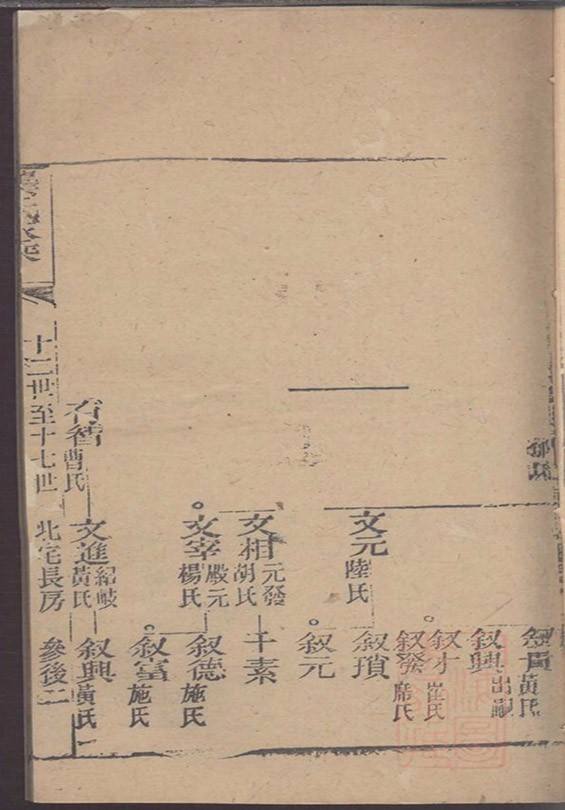 黃氏
叙興 出嗣
叙才 崔氏
叙發 席氏
文元 陸氏
叙瑣
叙元
文相 元發 胡氏
千素
文宰 嚴元 楊氏
叙德 施氏
叙富 施氏
有智 曹氏
文進 紀岐 黃氏
叙興 黃氏
十二世至十七世
北宅長房
參後二